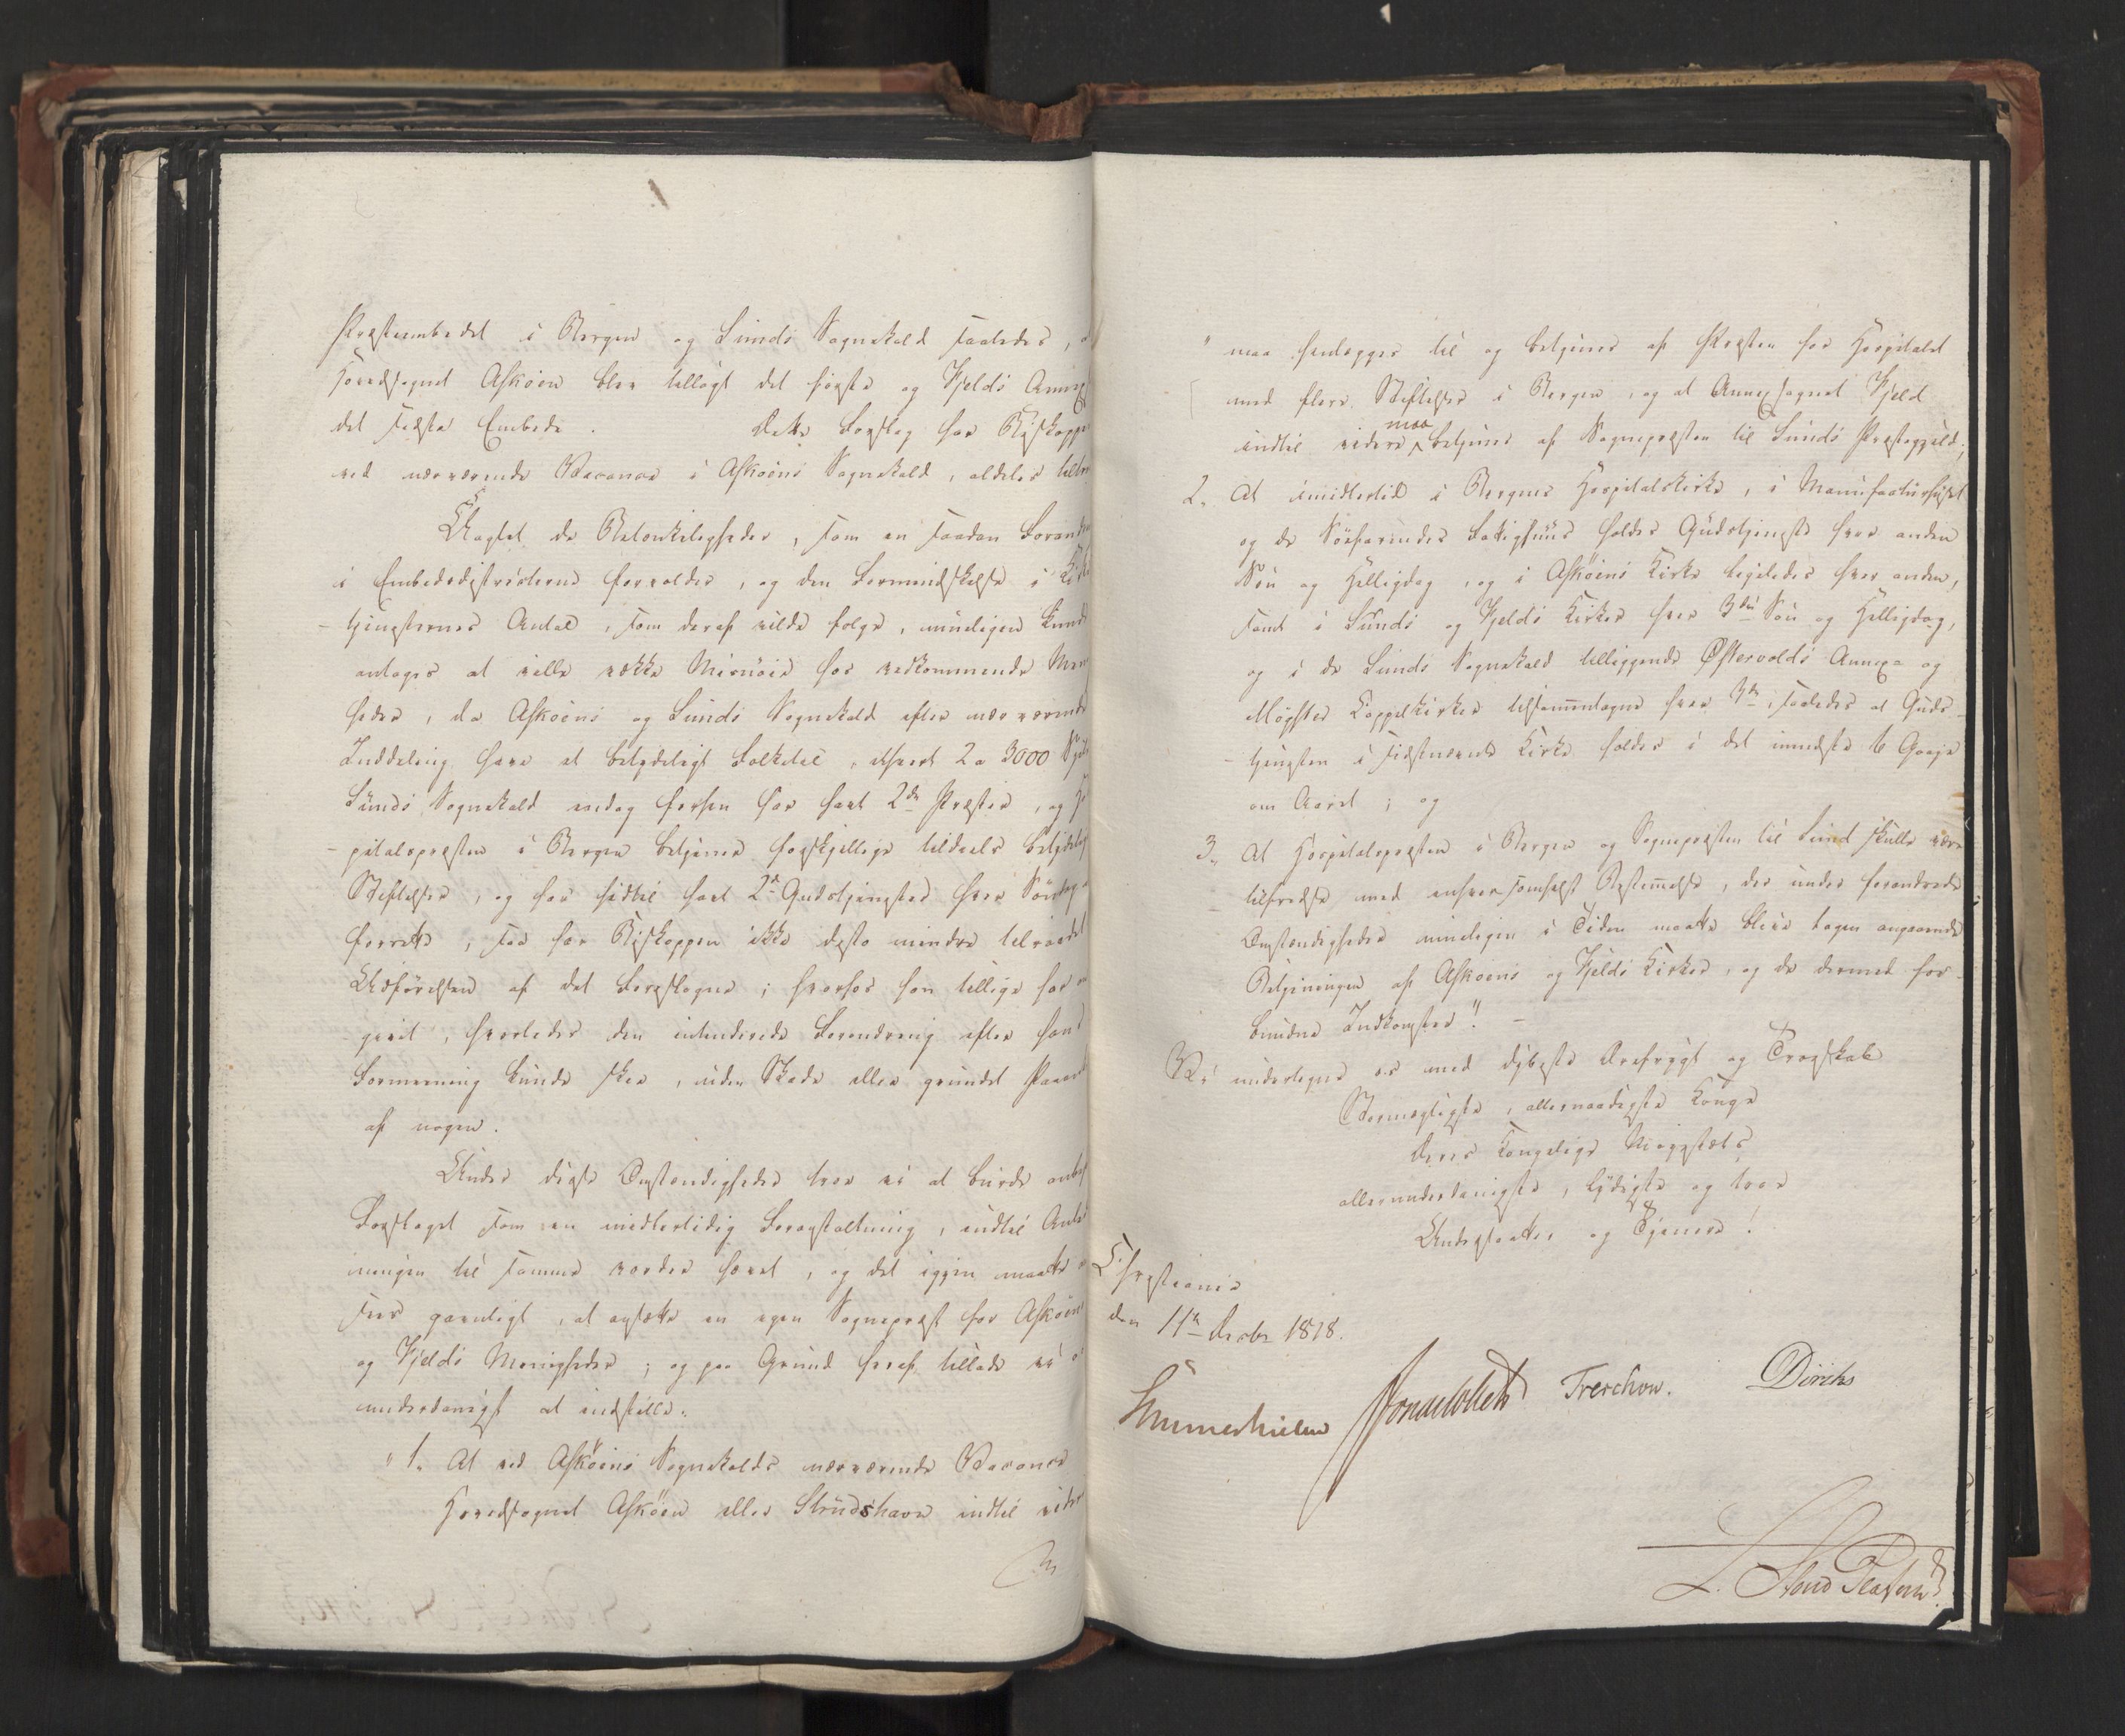 Præsteembedet i Bergen og Sunds Sognekald saaledes, a
Hovedsognet Askøen blev tillagt det første og Fjelds Annex
det sidste Embede. Dette Forslag har Biskoppen
ved nærværende Vacance i Askøens Sognekald, aldeles tiltr
Uagtet de Betænkeligheder, som en saadan Forandr
i Embedsdistricterne forvolder, og den Formindskelse i Kirke
-tjenesternes Antal, som deraf vilde følge, nimeligen kunde
antages at ville vække Misnøie hos vedkommende Menig
heder, da Askøens og Sunds Sognekald efter nærværende
Inddeling have et betydeligt Folketal, ethvert 2 a 3000 Sjæle
Sunds Sognekald endog forhen har havt 2de Præster, og Hos
-pitalspræsten i Bergen betjener forskjellige tildeels betydelig
Stiftelser, og har hidtil havt 2de Gudstjenester hver Søndag a
forrette, saa har Biskoppen ikke desto mindre tilraadet
Udførelsen af det Foreslagne; hvorhos han tillige har
-givet, hvorledes den intenderede Forandring efter hans
Formening kunde skee, uden Skade eller grundet Paaanke
af nogen.
Under disse Omstændigheder troe vi at burde anbef
Forslaget som en midlertidig Foranstaltning, indtil Anled
ningen til samme vorder hævet, og det igjen maatte
sees gavnligt, at ansætte en egen Sognepræst for Askøens
og Fjelds Menigheder; og paa Grund heraf tillade vi os
underdanigst at indstille:
" 1. At ved Askøens Sognekalds nærværende Vacance
Hovedsognet Askøen eller Strudshavn indtil videre
" maa henlægges til og betjenes af Præsten for Hospitalet
med flere Stiftelser i Bergen, og at Annexsognet Fjeld
maa
indtil videre betjenes af Sognepræsten til Sunds Præstegjeld;
2. At imidlertid i Bergens Hospitalskirke, i Manufacturhuset
og de Søefarendes Fattighuus holdes Gudstjeneste hver anden
Søn og Helligdag, og i Askøens Kirke ligeledes hver anden,
samt i Sunds og Fjelds Kirker hver 3die Søn og Helligdag,
og i de Sunds Sognekald tilliggende Østervolds Annex- og
Møgster Cappelkirker tilsammentagne hver 3de, saaledes at Guds-
-tjenesten i sidstnævnte Kirke holdes i det mindste 6 Gange
om Aaret; og
3. At Hospitalspræsten i Bergen og Sognepræsten til Sund skulle være
tilfredse med enhver somhelst Bestemmelse, der under forandrede
Omstændigheder nimeligen i Tiden maatte blive tagen angaaende
Betjeningen af Askøens og Fjelds Kirker, og de dermed for-
bundne Indkomster". -
Vi undertegne os med dybeste Ærefrygt og Troeskab
Stormægtigste, allernaadigste Konge
Deres Kongelige Majestæts
allerunderdanigste, lydigste og troe
Undersaatter og Tjenere!
Christiania
den 11te Decbr 1818.
Sommerhielm Jonas Collett Treschow. Diriks
L. Stoud Platou